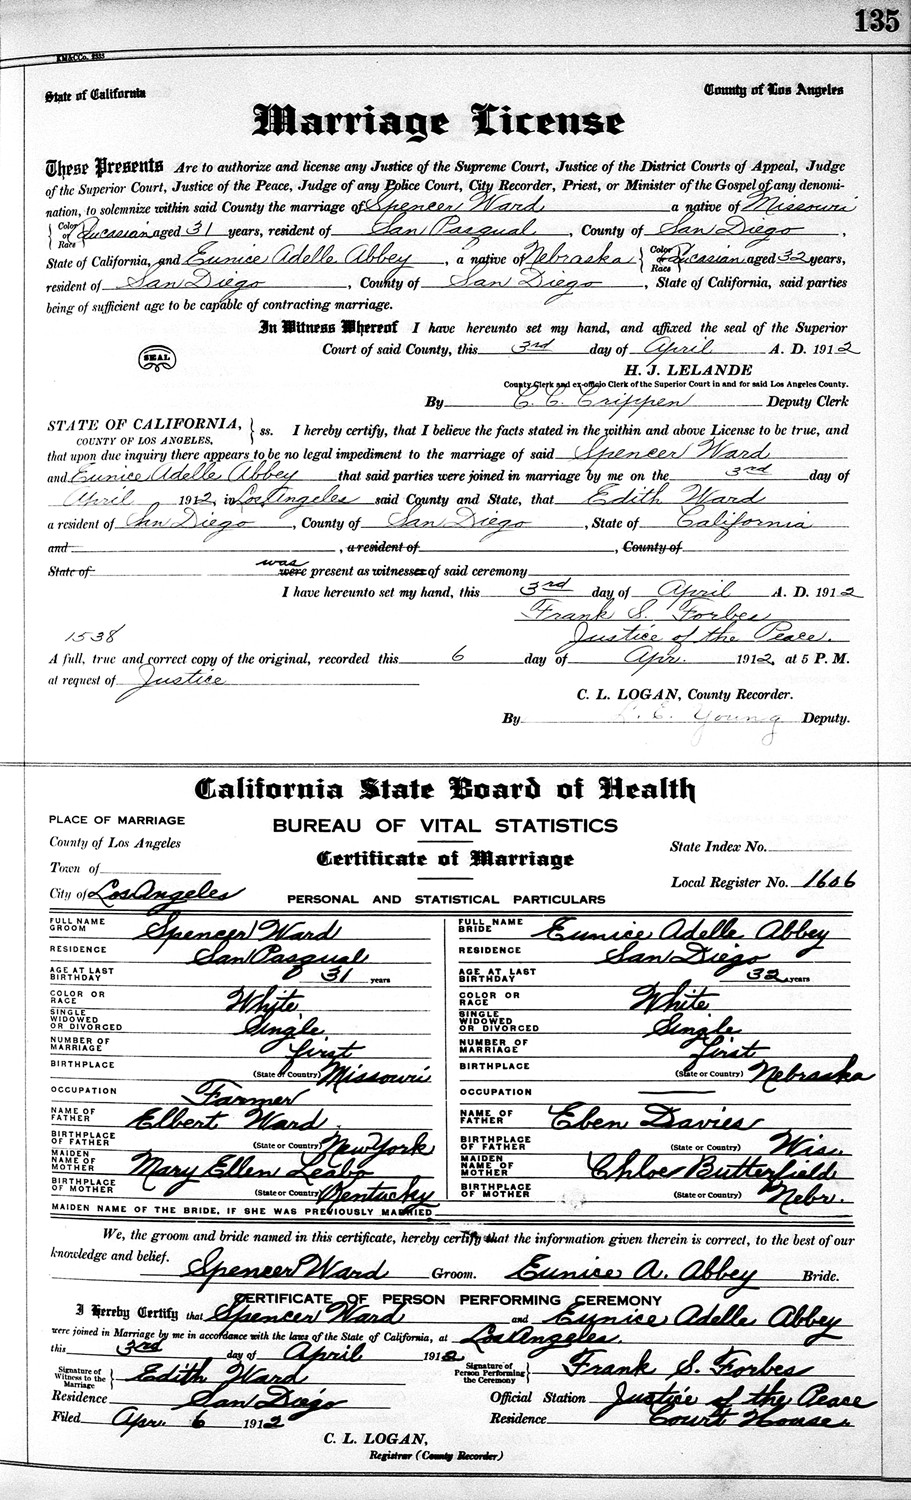 135
KM&CCo. 2535
State of California County of Los Angeles
Marriage License
These Presents Are to authorize and license any Justice of the Supreme Court, Justice of the District Courts of Appeal, Judge
of the Superior Court, Justice of the Peace, Judge of any Police Court, City Recorder, Priest, or Minister of the Gospel of any denomi-
nation, to solemnize within said County the marriage of Spencer Ward a native of Missouri
Color or Race Caucasian aged 31 years, resident of San Pasqual, County of San Diego,
State of California, and Eunice Adelle Abbey, a native of Nebraska Color or Race Caucasian aged 32 years,
resident of San Diego, County of San Diego, State of California, said parties
being of sufficient age to be capable of contracting marriage.
In Witness Whereof I have hereunto set my hand, and affixed the seal of the Superior
SEAL Court of said County, this 3rd day of April A. D. 1912
H. J. LELANDE
County Clerk and ex-officio Clerk of the Superior Court in and for said Los Angeles County.
By C. C. Crippen Deputy Clerk
STATE OF CALIFORNIA, COUNTY OF LOS ANGELES, ss. I hereby certify, that I believe the facts stated in the within and above License to be true, and
that upon due inquiry there appears to be no legal impediment to the marriage of said Spencer Ward
and Eunice Adelle Abbey that said parties were joined in marriage by me on the 3rd day of
April 1912, in Los Angeles said County and State, that Edith Ward
a resident of San Diego, County of San Diego, State of California
and , a resident of , County of
State of was were present as witnesses of said ceremony
I have hereunto set my hand, this 3rd day of April A. D. 1912
Frank S. Forbes
1538 Justice of the Peace.
A full, true and correct copy of the original, recorded this 6 day of Apr. 1912, at 5 P. M.
at request of Justice
C. L. LOGAN, County Recorder.
By L. E. Young Deputy.
California State Board of Health
PLACE OF MARRIAGE
BUREAU OF VITAL STATISTICS
County of Los Angeles State Index No.
Certificate of Marriage
Town of
Local Register No. 1606
City of Los Angeles
PERSONAL AND STATISTICAL PARTICULARS
FULL NAME GROOM Spencer Ward FULL NAME BRIDE Eunice Adelle Abbey
RESIDENCE San Pasqual RESIDENCE San Diego
AGE AT LAST BIRTHDAY 31 years AGE AT LAST BIRTHDAY 32 years
COLOR OR RACE White COLOR OR RACE White
SINGLE WIDOWED OR DIVORCED Single SINGLE WIDOWED OR DIVORCED Single
NUMBER OF MARRIAGE first NUMBER OF MARRIAGE first
BIRTHPLACE (State or Country) Missouri BIRTHPLACE (State or Country) Nebraska
OCCUPATION Farmer OCCUPATION
NAME OF FATHER Elbert Ward. NAME OF FATHER Eben Davies
BIRTHPLACE OF FATHER (State or Country) New York BIRTHPLACE OF FATHER (State or Country) Wis.
MAIDEN NAME OF MOTHER Mary Ellen Leabo MAIDEN NAME OF MOTHER Chloe Butterfield
BIRTHPLACE OF MOTHER (State or Country) Kentucky BIRTHPLACE OF MOTHER (State or Country) Nebr.
MAIDEN NAME OF THE BRIDE, IF SHE WAS PREVIOUSLY MARRIED
We, the groom and bride named in this certificate, hereby certify that the information given therein is correct, to the best of our
knowledge and belief.
Spencer Ward Groom. Eunice A. Abbey Bride.
CERTIFICATE OF PERSON PERFORMING CEREMONY
I Hereby Certify that Spencer Ward and Eunice Adelle Abbey
were joined in Marriage by me in accordance with the laws of the State of California, at Los Angeles.
this 3rd day of April 1912
Signature of Witness to the Marriage Edith Ward Signature of Person Performing the Ceremony Frank S. Forbes
Residence San Diego Official Station Justice of the Peace
Filed Apr. 6 1912 Residence Court House.
C. L. LOGAN,
Registrar (County Recorder)